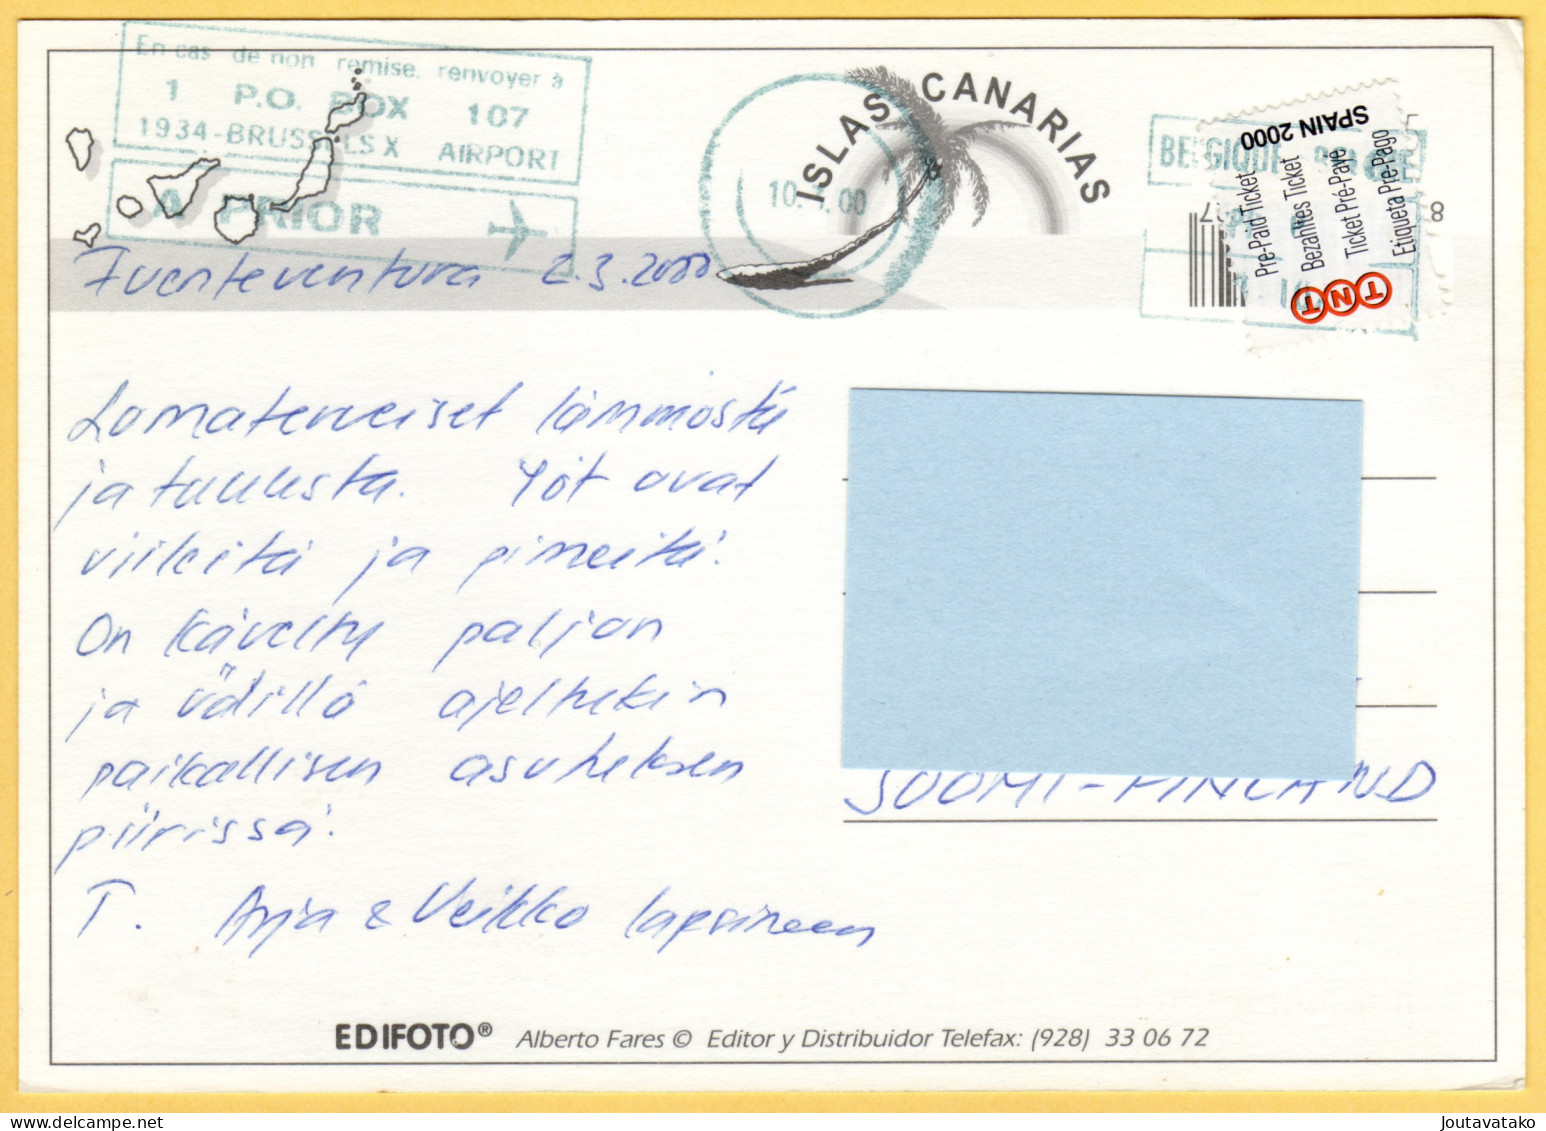 En cas de non remise, renvoyer à
1 P.O. BOX 107
1934-BRUSSELS X AIRPORT
A PRIOR
ISLAS CANARIAS
10. 00
BELGIQUE
SPAIN 2000
Pre-Paid Ticket
Bezahltes Ticket
Ticket Pré-Payé
Etiqueta Pre-Pago
TNT
Fuenteventura 2.3.2000
Lomaterveiset lämmöstä
ja tuulesta. Yöt ovat
viileitä ja pimeitä.
On kävelty paljon
ja öillä ajeltukin
paikallisen asutuksen
piirissä.
T. Arja & Veikko lapsineen
SUOMI-FINLAND
EDIFOTO® Alberto Fares © Editor y Distribuidor Telefax: (928) 33 06 72
joutavatako